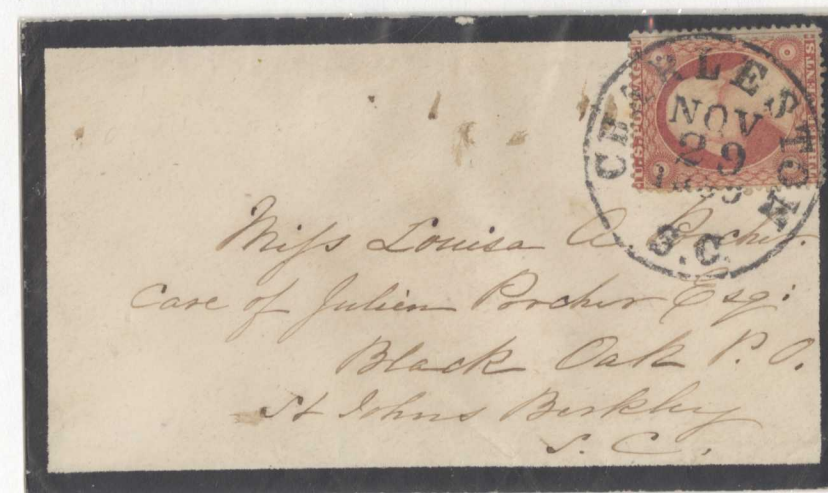 U.S. POSTAGE
CENTS
CHARLESTON
NOV
29
S.C.
Miſs Louisa A. Porcher.
Care of Julien Porcher Esq:
Black Oak P.O.
St Johns Berkley
S. C.